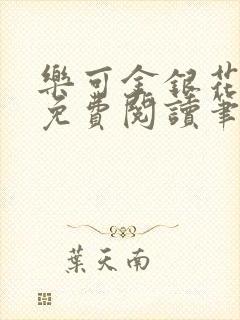 樂可金銀花
免費閱讀筆
葉天南